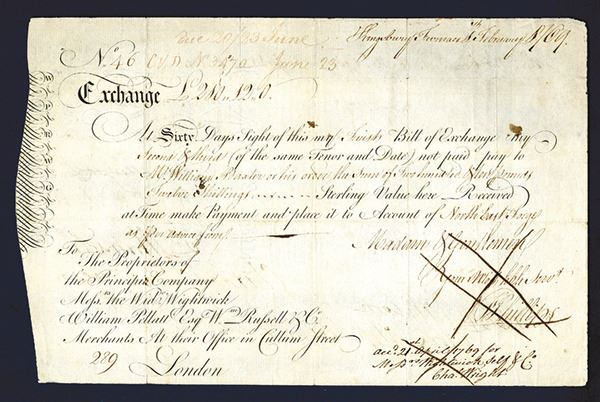 due 20/23 June Kingsbury Furnace 4th February 1769.
No. 46 CVD No. 3470 June 23
Exchange £ 210.. 12.. 0.
At Sixty Days Sight of this my First Bill of Exchange my
Second & third (of the same Tenor and Date) not paid pay to
Mr. William Baxter or his order the Sum of Two hundred & ten pounds
Twelve Shillings Sterling Value here Received
at Time make Payment and place it to Account of North East Forge
as per advice from
To Madam & Gentlemen
The Proprietors of Your
the Principio Company
Messrs. the Wid. Wightwick
William Pellatt Esqr. Wm. Russell & Co.
Merchants At their Office in Cullum Street
289 London
accd. 21st April 1769 for
Messrs. Wightwick Self & Co.
Chas. Wright